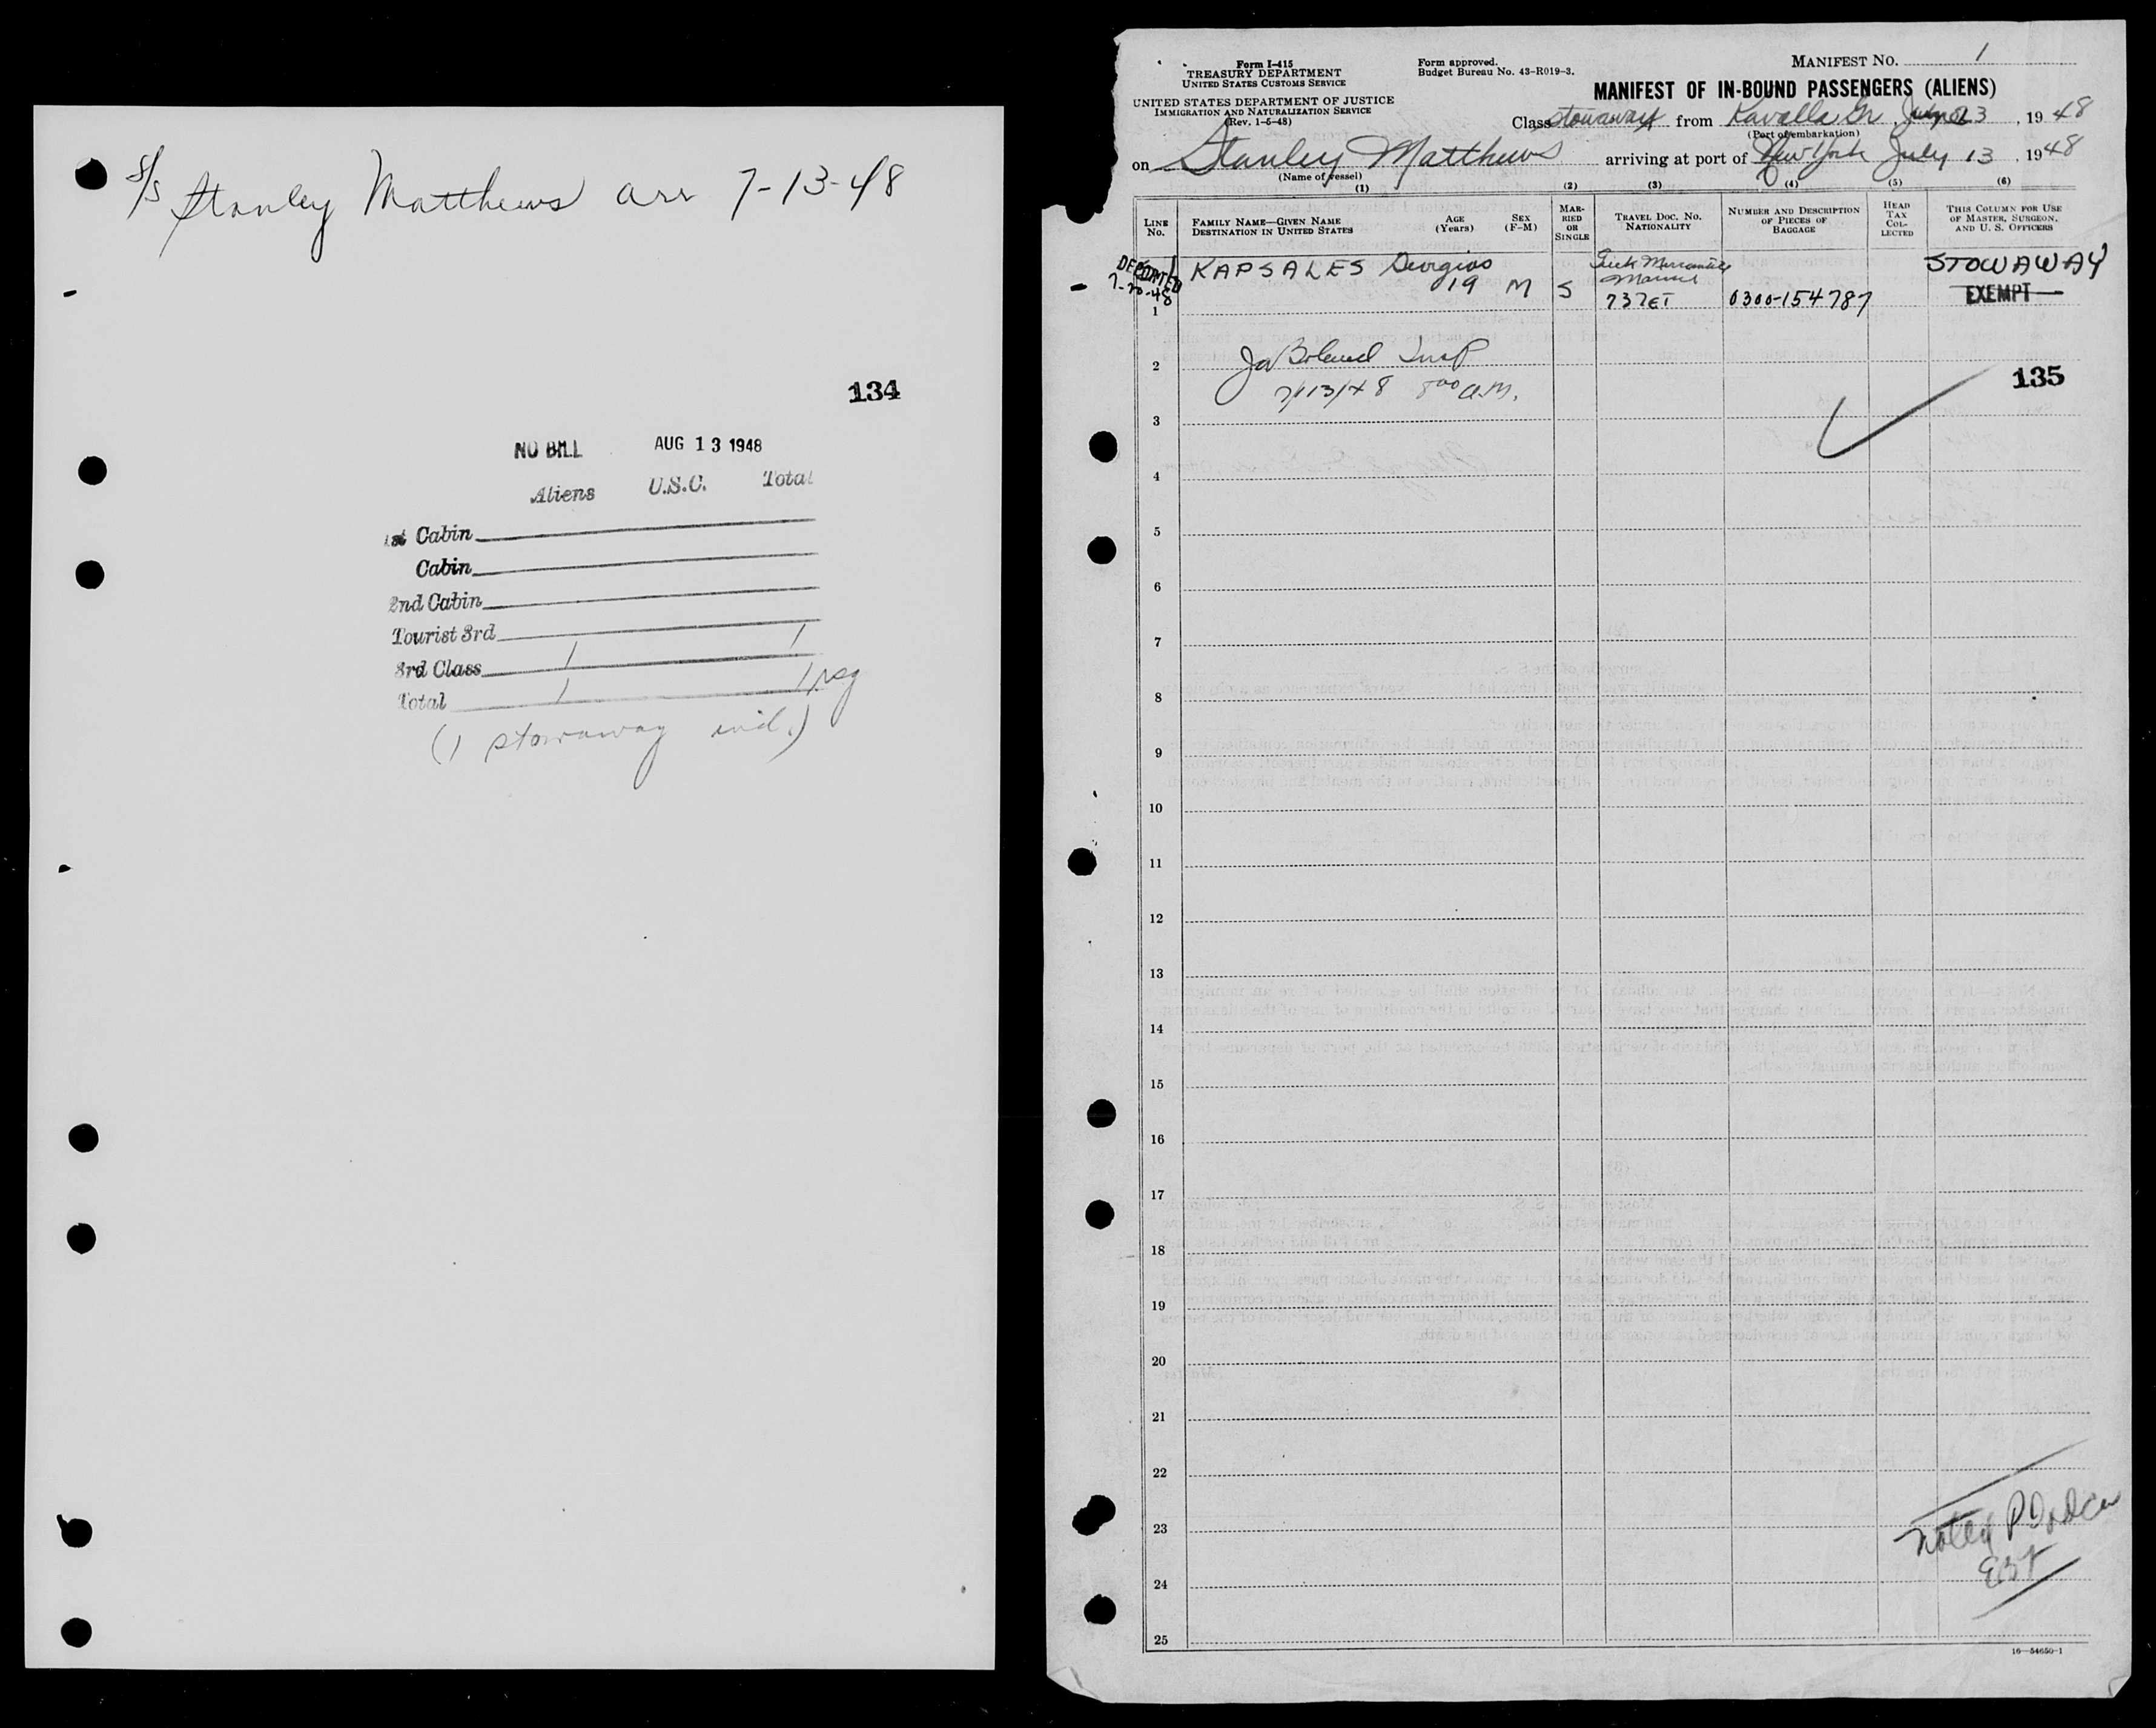 S/S Stanley Matthews arr 7-13-48
134
NO BILL AUG 13 1948
Aliens U.S.C. Total
1st Cabin
Cabin
2nd Cabin
Tourist 3rd
3rd Class 1 1
Total 1 1 psg
(1 stowaway incl.)
Form I-415
TREASURY DEPARTMENT
UNITED STATES CUSTOMS SERVICE
UNITED STATES DEPARTMENT OF JUSTICE
IMMIGRATION AND NATURALIZATION SERVICE
(Rev. 1-5-48)
Form approved.
Budget Bureau No. 43-R019-3.
MANIFEST NO. 1
MANIFEST OF IN-BOUND PASSENGERS (ALIENS)
Class stowaway from Kavalla Gr, 23, 1948
(Port of embarkation)
on Stanley Matthews arriving at port of New York July 13, 1948
(Name of vessel)
(1) (2) (3) (4) (5) (6)
LINE No. FAMILY NAME—GIVEN NAME DESTINATION IN UNITED STATES AGE (Years) SEX (F-M) MARRIED OR SINGLE TRAVEL DOC. NO. NATIONALITY NUMBER AND DESCRIPTION OF PIECES OF BAGGAGE HEAD TAX COLLECTED THIS COLUMN FOR USE OF MASTER, SURGEON, AND U. S. OFFICERS
DEPORTED
7-20-48
KAPSALES Georgios Greek STOWAWAY
19 M S
737ET 0300-154787 EXEMPT
1
2
7/13/48 8 00 a.m.
135
3
4
5
6
7
8
9
10
11
12
13
14
15
16
17
18
19
20
21
22
23
24
25
16—54650-1